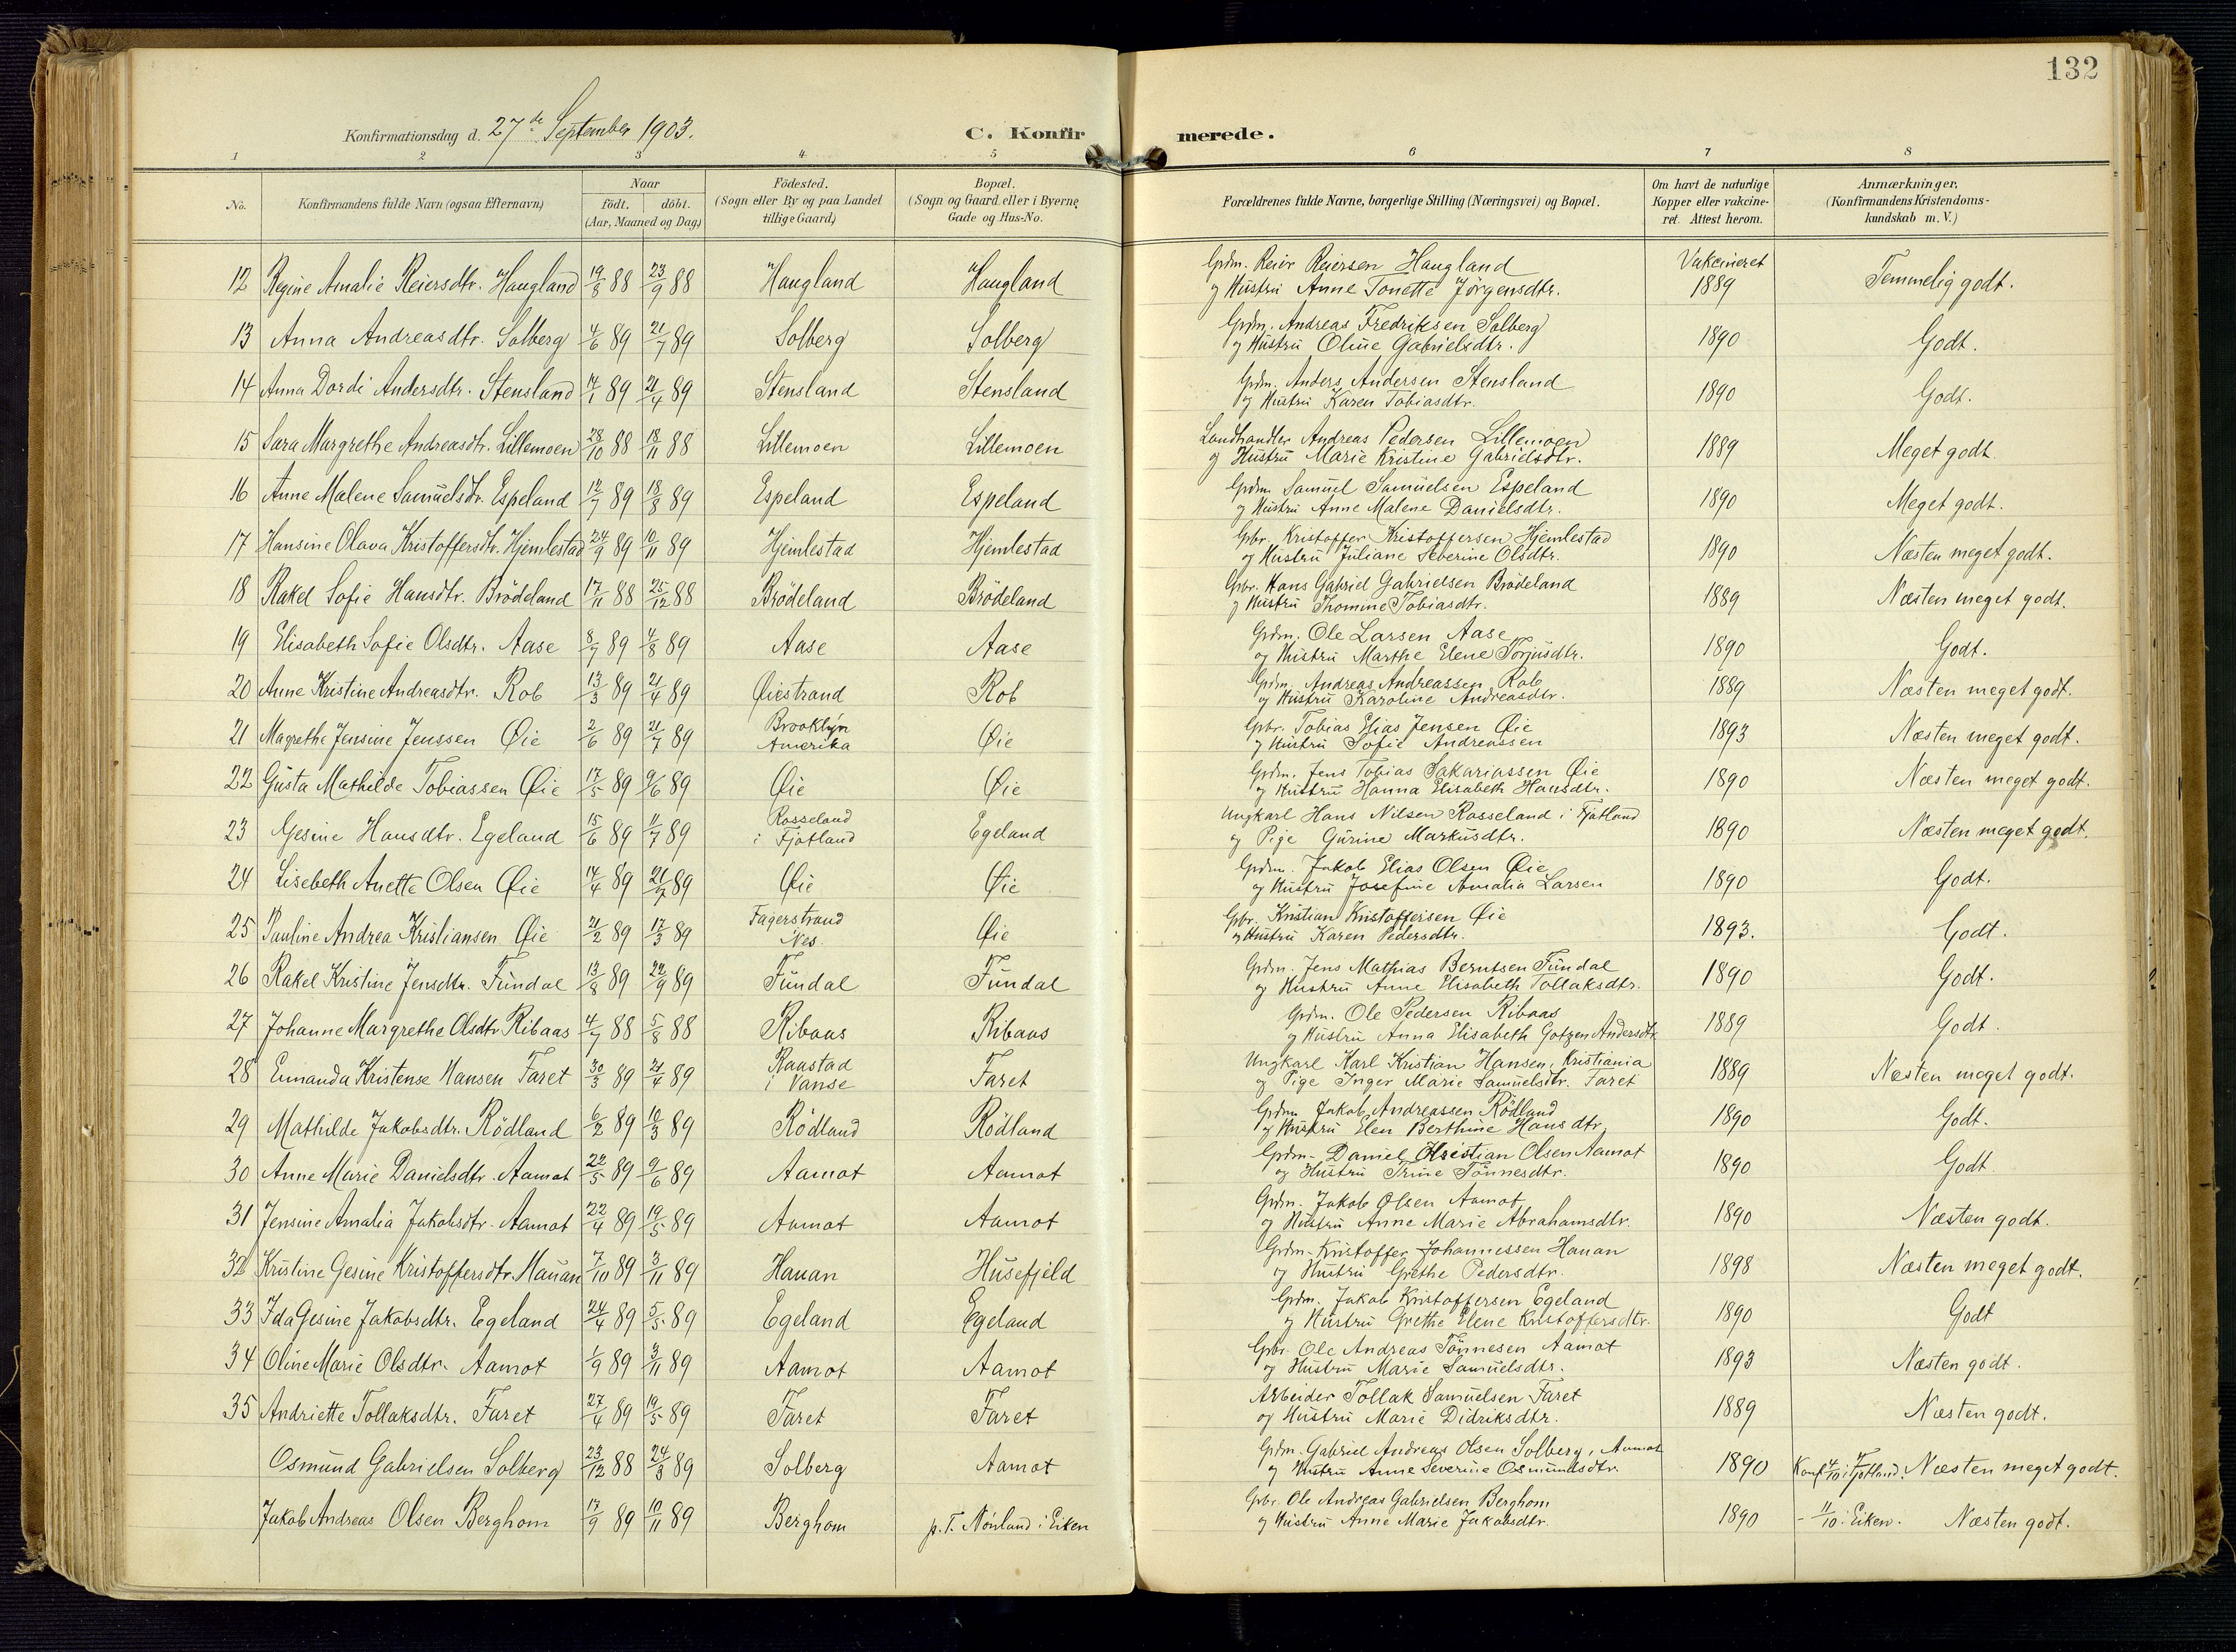 132
Konfirmationsdag d. 27de September 1903.
C. Konfirmerede.
1 2 3 4 5 6 7 8
No.
Konfirmandens fulde Navn (ogsaa Efternavn)
Naar
født. døbt.
(Aar, Maaned og Dag)
Födested.
(Sogn eller By og paa Landet
tillige Gaard)
Bopæl.
(Sogn og Gaard eller i Byerne
Gade og Hus-No.
Forældrenes fulde Navne, borgerlige Stilling (Næringsvei) og Bopæl.
Om havt de naturlige
Kopper eller vakcine-
ret. Attest herom.
Anmærkninger,
(Konfirmandens Kristendoms-
kundskab m. V.)
12 Regine Amalie Reiersdtr. Haugland 19/8 88 23/9 88 Haugland Haugland Grdm. Reier Reiersen Haugland Vakcineret
og Hustru Anne Tonette Jørgensdtr. 1889 Temmelig godt.
13 Anna Andreasdtr. Solberg 4/6 89 21/7 89 Solberg Solberg Grdm. Andreas Fredriksen Solberg
og Hustru Oline Gabrielsdtr. 1890 Godt.
14 Anna Dordi Andersdtr. Stensland 14/1 89 21/4 89 Stensland Stensland Grdm. Anders Andersen Stensland
og Hustru Karen Tobiasdtr. 1890 Godt.
15 Sara Margrethe Andreasdtr. Lillemoen 28/10 88 18/11 88 Lillemoen Lillemoen Landhandler Andreas Pedersen Lillemoen
og Hustru Marie Kristine Gabrielsdtr. 1889 Meget godt.
16 Anne Malene Samuelsdtr. Espeland 12/7 89 18/8 89 Espeland Espeland Grdm Samuel Samuelsen Espeland
og Hustru Anne Malene Danielsdtr. 1890 Meget godt.
17 Hansine Olava Kristoffersdtr. Hjemlestad 24/9 89 10/11 89 Hjemlestad Hjemlestad Gbr. Kristoffer Kristoffersen Hjemlestad
og Hustru Juliane Severine Olsdtr. 1890 Næsten meget godt.
18 Rakel Sofie Hansdtr. Brödeland 17/11 88 25/12 88 Brödeland Brödeland Gbr. Hans Gabriel Gabrielsen Brödeland
og Hustru Thomine Tobiasdtr. 1889 Næsten meget godt.
19 Elisabeth Sofie Olsdtr. Aase 8/7 89 4/8 89 Aase Aase Grdm. Ole Larsen Aase
og Hustru Marthe Elene Torjusdtr. 1890 Godt.
20 Anne Kristine Andreasdtr. Rob 13/3 89 21/4 89 Øiestrand Rob Grdm. Andreas Andreassen Rob
og Hustru Karoline Andreasdtr. 1889 Næsten meget godt.
21 Magrethe Jensine Jenssen Øie 2/6 89 21/7 89 Brooklyn Amerika Øie Gbr. Tobias Elias Jensen Øie
og Hustru Sofie Andreassen 1893 Næsten meget godt.
22 Gusta Mathilde Tobiassen Øie 17/5 89 9/6 89 Øie Øie Grdm. Jens Tobias Sakariassen Øie
og Hustru Hanna Elisabeth Hansdtr. 1890 Næsten meget godt.
23 Gesine Hansdtr. Egeland 15/6 89 11/7 89 Rosseland i Fjotland Egeland Ungkarl Hans Nilsen Rosseland i Fjotland
og Pige Gurine Markusdtr. 1890 Næsten meget godt.
24 Lisebeth Anette Olsen Øie 14/4 89 21/7 89 Øie Øie Grdm. Jakob Elias Olsen Øie
og Hustru Josefine Amalia Larsen 1890 Godt.
25 Pauline Andrea Kristiansen Øie 21/2 89 17/3 89 Fagerstrand Nes. Øie Gbr. Kristian Kristoffersen Øie
og Hustru Karen Pedersdtr. 1893. Godt.
26 Rakel Kristine Jensdtr. Fundal 13/8 89 22/9 89 Fundal Fundal Grdm. Jens Mathias Berntsen Fundal
og Hustru Anne Elisabeth Tollaksdtr. 1890 Godt.
27 Johanne Margrethe Olsdtr Ribaas 4/7 88 5/8 88 Ribaas Ribaas Grdm. Ole Pedersen Ribaas
og Hustru Anna Elisabeth Gotzen Andersdtr 1889 Godt.
28 Emanda Kristense Hansen Faret 30/3 89 21/4 89 Raustad i Vanse Faret Ungkarl Karl Kristian Hansen, Kristiania
og Pige Inger Marie Samuelsdtr. Faret 1889 Næsten meget godt.
29 Mathilde Jakobsdtr. Rödland 6/2 89 10/3 89 Rödland Rödland Grdm Jakob Andreassen Rödland
og Hustru Elen Berthine Hansdtr. 1890 Godt.
30 Anne Marie Danielsdtr. Aamot 22/5 89 9/6 89 Aamot Aamot Grdm. Daniel Kristian Olsen Aamot
og Hustru Trine Tönnesdtr. 1890 Godt.
31 Jensine Amalia Jakobsdtr. Aamot 22/4 89 19/5 89 Aamot Aamot Grdm. Jakob Olsen Aamot
og Hustru Anne Marie Abrahamsdtr. 1890 Næsten godt.
32 Kristine Gesine Kristoffersdtr. Hauan 7/10 89 3/11 89 Hauan Husefjeld Grdm. Kristoffer Johannessen Hauan
og Hustru Grethe Pedersdtr. 1898 Næsten meget godt.
33 Ida Gesine Jakobsdtr. Egeland 24/4 89 5/5 89 Egeland Egeland Grdm. Jakob Kristoffersen Egeland
og Hustru Grethe Elene Kristoffersdtr. 1890 Godt
34 Oline Marie Olsdtr. Aamot 1/9 89 3/11 89 Aamot Aamot Gbr. Ole Andreas Tönnesen Aamot
og Hustru Marie Samuelsdtr. 1893 Næsten godt.
35 Andriette Tollaksdtr. Faret 27/4 89 19/5 89 Faret Faret Arbeider Tollak Samuelsen Faret
og Hustru Marie Didriksdtr. 1889 Næsten godt.
Osmund Gabrielsen Solberg 23/12 88 24/3 89 Solberg Aamot Grdm. Gabriel Andreas Olsen Solberg, Aamot
og Hustru Anne Severine Osmundsdtr. 1890 Konf 4/10 i Fjotland. Næsten meget godt.
Jakob Andreas Olsen Berghom 17/9 89 10/11 89 Berghom p. T. i Eiken Gbr. Ole Andreas Gabrielsen Berghom
og Hustru Anne Marie Jakobsdtr. 1890 - 11/10 i Eiken. Næsten godt.